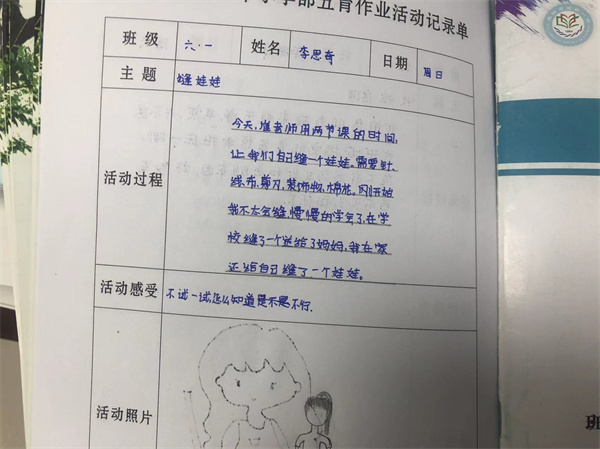 小学部五育作业活动记录单
班级 六·一 姓名 李思奇 日期 周日
主题 缝娃娃
活动过程
今天,崔老师用两节课的时间,
让我们自己缝一个娃娃。需要针、
线、布、剪刀、装饰物、棉花。刚开始
我不太会缝,慢慢的学会了,在学
校缝了一个送给了妈妈,我在家
还给自己缝了一个娃娃。
活动感受 不试一试怎么知道是不是不行.
活动照片
班